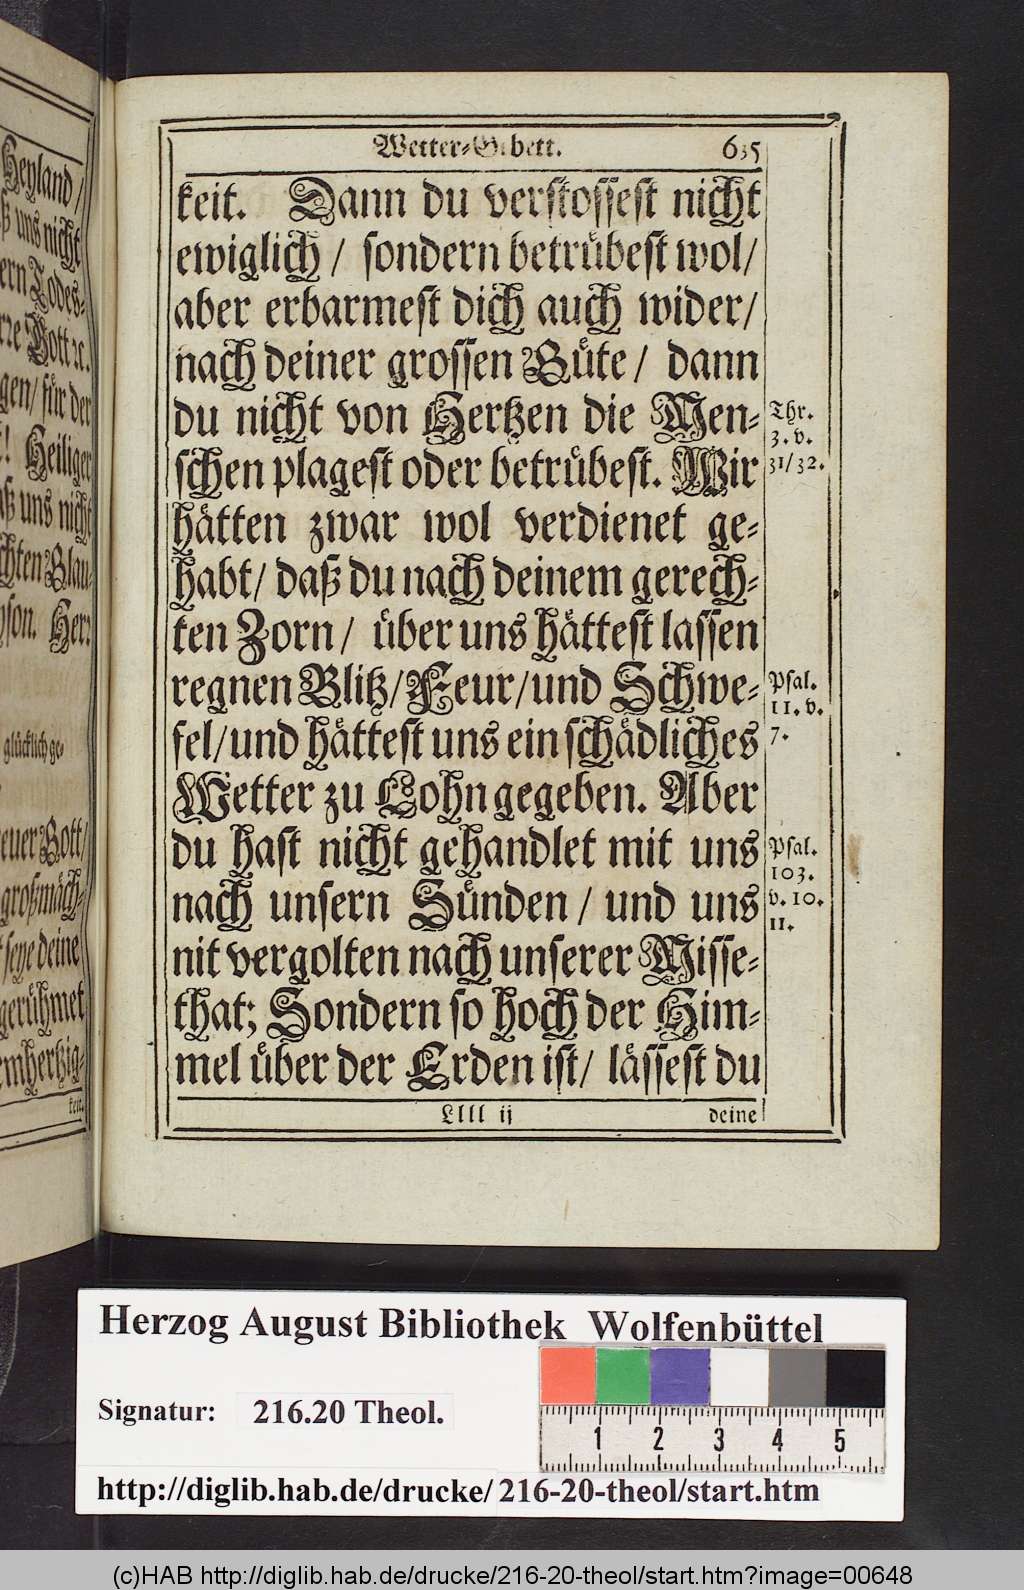 Heyland /
ß uns nicht
ern Todes-
rre Gott ꝛc.
gen / für der
! Heiliger
aß uns nicht
chten Glau-
yson. Herꝛ
glücklich ge-
euer Gott /
großmäch-
seye deine
gerühmet
emhertzig-
keit.
Wetter-Gebett. 635
keit. Dann du verstossest nicht
ewiglich / sondern betrübest wol /
aber erbarmest dich auch wider /
nach deiner grossen Güte / dann
du nicht von Hertzen die Men-
schen plagest oder betrübest. Wir
hätten zwar wol verdienet ge-
habt / daß du nach deinem gerech-
ten Zorn / über uns hättest lassen
regnen Blitz / Feur / und Schwe-
fel / und hättest uns ein schädliches
Wetter zu Lohn gegeben. Aber
du hast nicht gehandlet mit uns
nach unsern Sünden / und uns
nit vergolten nach unserer Misse-
that; Sondern so hoch der Him-
mel über der Erden ist / lässest du
Llll ij deine
Thr.
3. v.
31 / 32.
Psal.
11. v.
7.
Psal.
103.
v. 10.
11.
Herzog August Bibliothek Wolfenbüttel
Signatur: 216.20 Theol.
1 2 3 4 5
http://diglib.hab.de/drucke/216-20-theol/start.htm
(c)HAB http://diglib.hab.de/drucke/216-20-theol/start.htm?image=00648